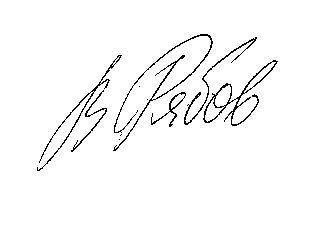 В Рябов